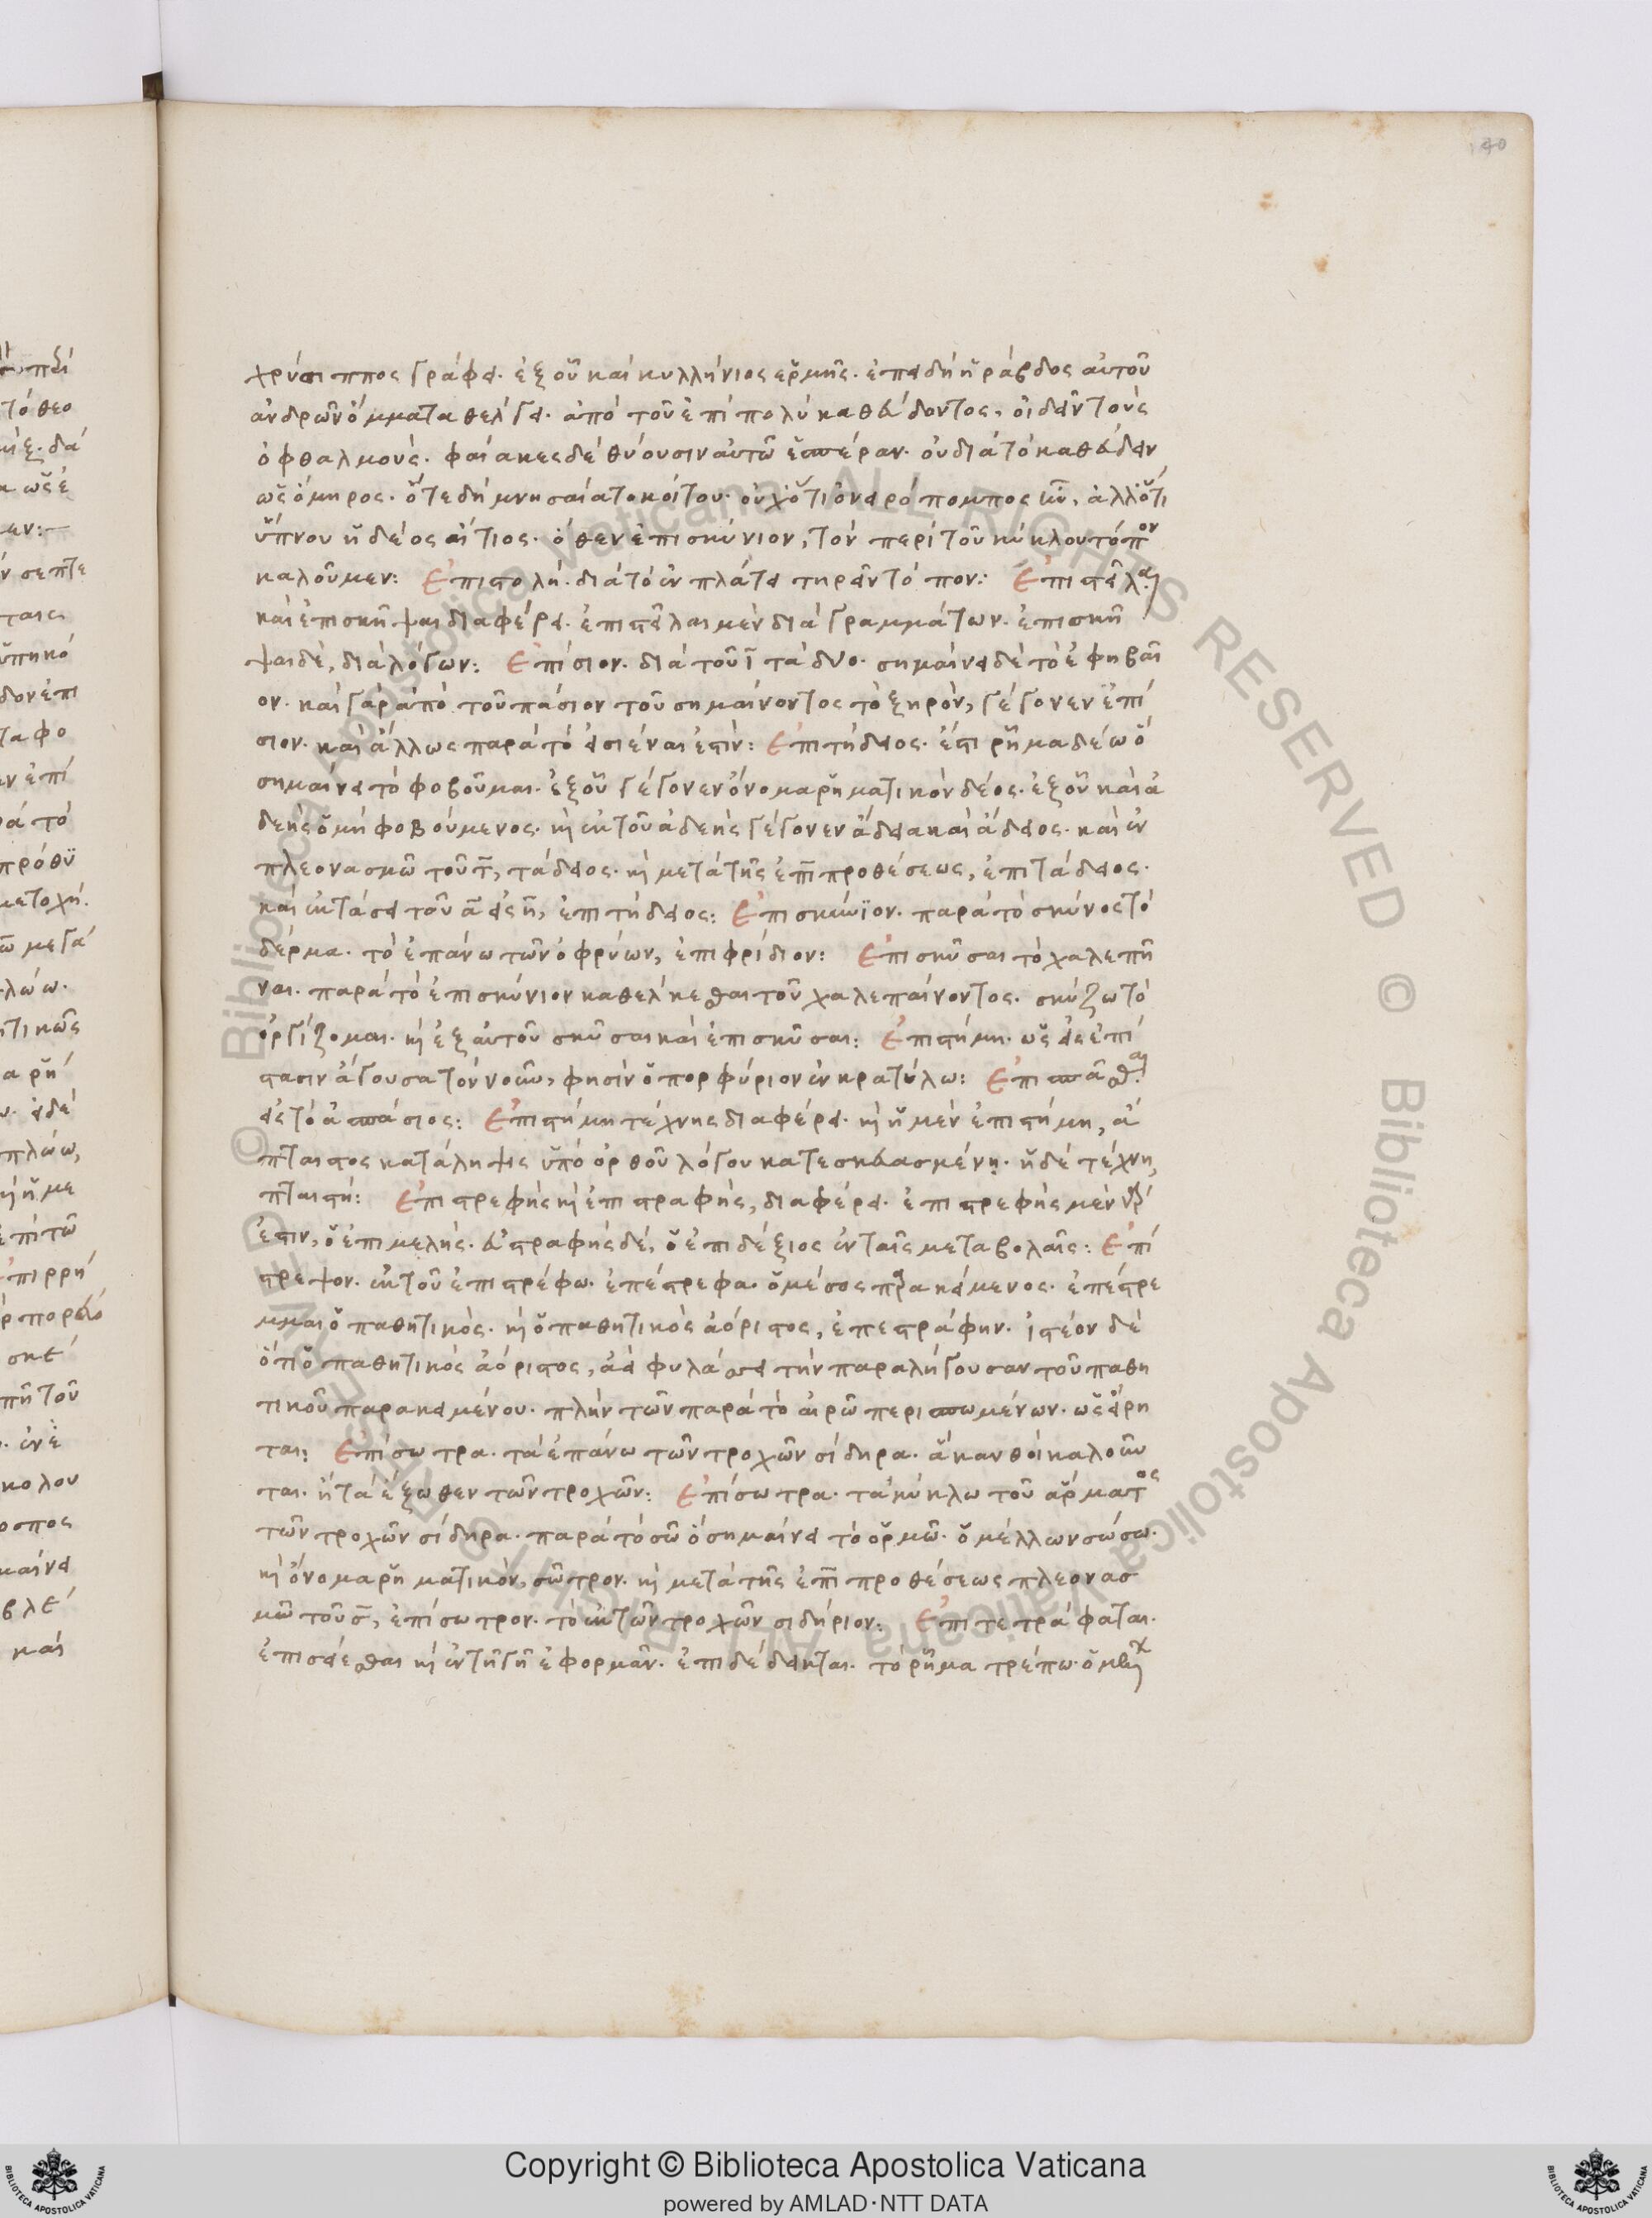 140
χρύσιππος γράφει· ἐξ οὗ καὶ κυλλήνιος ἑρμῆς· ἐπειδὴ ἡ ράβδος αὐτοῦ
ἀνδρῶν ὄμματα θέλγει· ἀπὸ τοῦ ἐπιπολὺ καθεύδοντος, οἰδεῖν τοὺς
ὀφθαλμούς· φαίακες δὲ θύουσιν αὐτῶ ἑσπέραν· οὐ διὰ τὸ καθεύδειν
ὡς ὅμηρος· ὅτε δὴ μνησαίατο κοίτου· οὐχ ὅτι ὀνειρόπομπος , ἀλλ' ὅτι
ὕπνου ἡδέος αἴτιος· ὅθεν ἐπισκύνιον, τὸν περὶ τοῦ κύκλου τόπον
καλοῦμεν: Ἐπιστολή· διὰ τὸ ἐν πλάτει τηρεῖν τόπον: Ἐπιστεῖλαι
καὶ ἐπισκῆψαι διαφέρει· ἐπιστεῖλαι μὲν διὰ γραμμάτων· ἐπισκῆ
ψαι δὲ, διὰ λόγων: Ἐπίσιον· διὰ τοῦ ῑ τὰ δύο· σημαίνει δὲ τὸ ἐφηβαῖ
ον· καὶ γὰρ ἀπὸ τοῦ πάσιον τοῦ σημαίνοντος τὸ ξηρὸν, γέγονεν ἐπί
σιον· καὶ ἄλλως παρὰ τὸ εἰσιέναι ἐστίν: Ἐπιτήδειος· ἔστι ρῆμα δείω ὃ
σημαίνει τὸ φοβοῦμαι· ἐξ οὗ γέγονεν ὄνομα ρηματικὸν δέος· ἐξ οὗ καὶ ἀ
δεὴς ὁ μὴ φοβούμενος· κὶ ἐκ τοῦ ἀδεὴς γέγονεν ἄδεια καὶ ἄδειος· καὶ ἐν
πλεονασμῶ τοῦ τ̄, τάδειος· κὶ μετὰ τῆς ἐπῑ προθέσεως, ἐπιτάδειος·
καὶ ἐκτάσει τοῦ ᾱ εἰς η̄, ἐπιτήδειος: Ἐπισκύνϊον· παρὰ τὸ σκύνος τὸ
δέρμα· τὸ ἐπάνω τῶν ὀφρύων, ἐπιφρίδιον: Ἐπισκῦσαι τὸ χαλεπῆ
ναι· παρὰ τὸ ἐπισκύνιον καθέλκεσθαι τοῦ χαλεπαίνοντος· σκύζω τὸ
ὀργίζομαι· κὶ ἐξ αὐτοῦ σκῦσαι καὶ ἐπισκῦσαι: Ἐπιστήμη· ὡς εἰς ἐπί
στασιν ἄγουσα τὸν νοῦν, φησὶν ὁ πορφύριον ἐν κρατύλω: Ἐπισπᾶσθαι
εἰς τὸ ἀσπάσιος: Ἐπιστήμη τέχνης διαφέρει· κὶ ἡ μὲν ἐπιστήμη, ἄ
πταιστος κατάληψις ὑπὸ ὀρθοῦ λόγου κατεσκευασμένη· ἡ δὲ τέχνη,
πταιστή: Ἐπιστρεφὴς κὶ ἐπιστραφὴς, διαφέρει· ἐπιστρεφὴς μὲν γάρ
ἐστιν, ὁ ἐπιμελής· εὐστραφὴς δὲ, ὁ ἐπιδέξιος ἐν ταῖς μεταβολαῖς: Ἐπί
στρεψον· ἐκ τοῦ ἐπιστρέφω· ἐπέστρεφα· ὁ μέσος παρακείμενος· ἐπέστρε
μμαι ὁ παθητικός· κὶ ὁ παθητικὸς ἀόριστος, ἐπεστράφην· ἰστέον δὲ
ὅτι ὁ παθητικὸς ἀόριστος, ἀεὶ φυλάσσει τὴν παραλήγουσαν τοῦ παθη
τικοῦ παρακειμένου· πλὴν τῶν παρὰ τὸ αἱρῶ περισπωμένων· ὡς εἴρη
ται: Ἐπίσωτρα· τὰ ἐπάνω τῶν τροχῶν σίδηρα· ἃ κανθοὶ καλοῦν
ται· ἢ τὰ ἔξωθεν τῶν τροχῶν: Ἐπίσωτρα· τὰ κύκλω τοῦ ἅρματος
τῶν τροχῶν σίδηρα· παρὰ τὸ σῶ ὃ σημαίνει τὸ ὁρμῶ· ὁ μέλλων σώσω·
κὶ ὄνομα ρηματικὸν, σῶτρον· κὶ μετὰ τῆς ἐπῑ προθέσεως πλεονασ
μῶ τοῦ σ̄, ἐπίσωτρον· τὸ ἐκ τῶν τροχῶν σιδήριον: Ἐπιτετράφαται·
ἐπισείεσθαι κὶ ἐν τῆ γῆ ἐφορμᾶν· ἐπιδέδεικται· τὸ ρῆμα τρέπω· ὁ